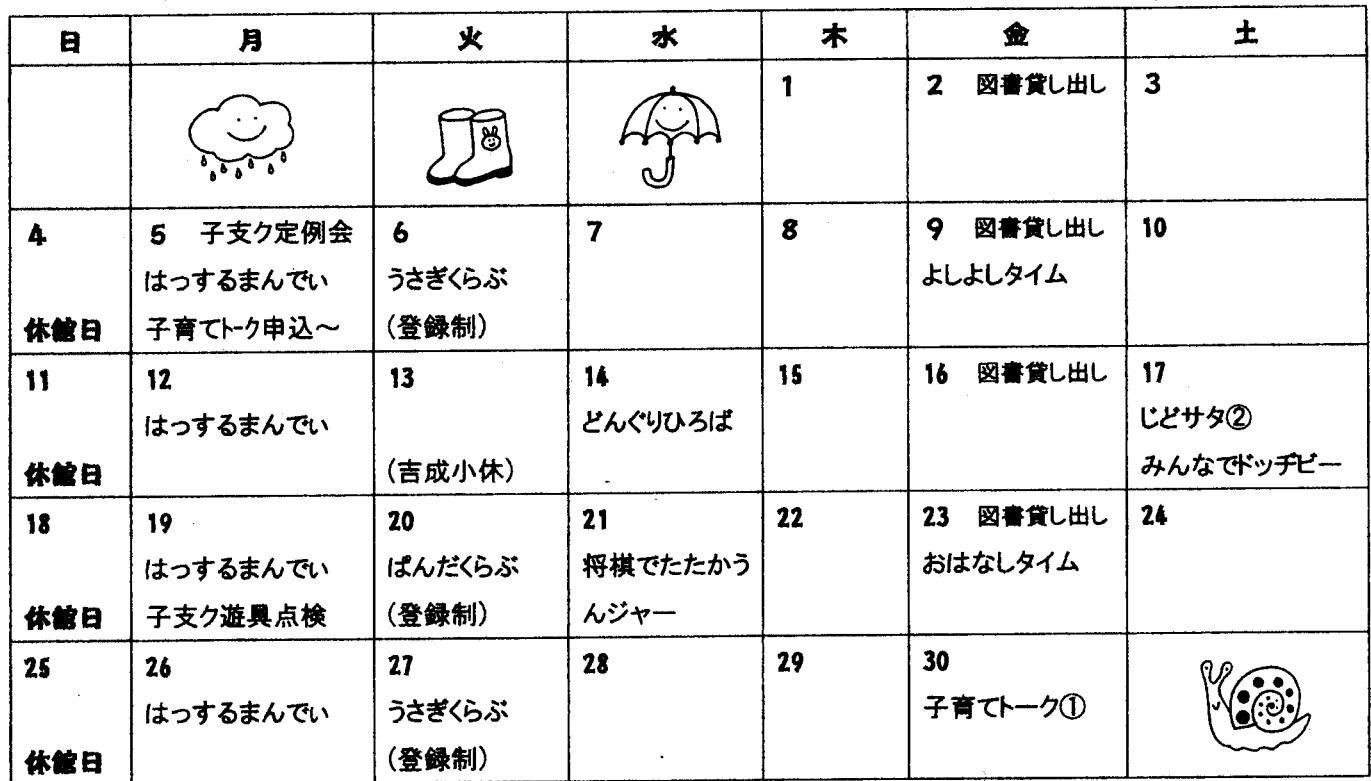 日 月 火 水 木 金 土
1 2 図書貸し出し 3
4
休館日
5 子支ク定例会
はっするまんでい
子育てトーク申込～
6
うさぎくらぶ
(登録制)
7
8
9 図書貸し出し
よしよしタイム
10
11
休館日
12
はっするまんでい
13
(吉成小休)
14
どんぐりひろば
15
16 図書貸し出し
17
じどサタ②
みんなでドッヂビー
18
休館日
19
はっするまんでい
子支ク遊具点検
20
ぱんだくらぶ
(登録制)
21
将棋でたたかう
んジャー
22
23 図書貸し出し
おはなしタイム
24
25
休館日
26
はっするまんでい
27
うさぎくらぶ
(登録制)
28
29
30
子育てトーク①